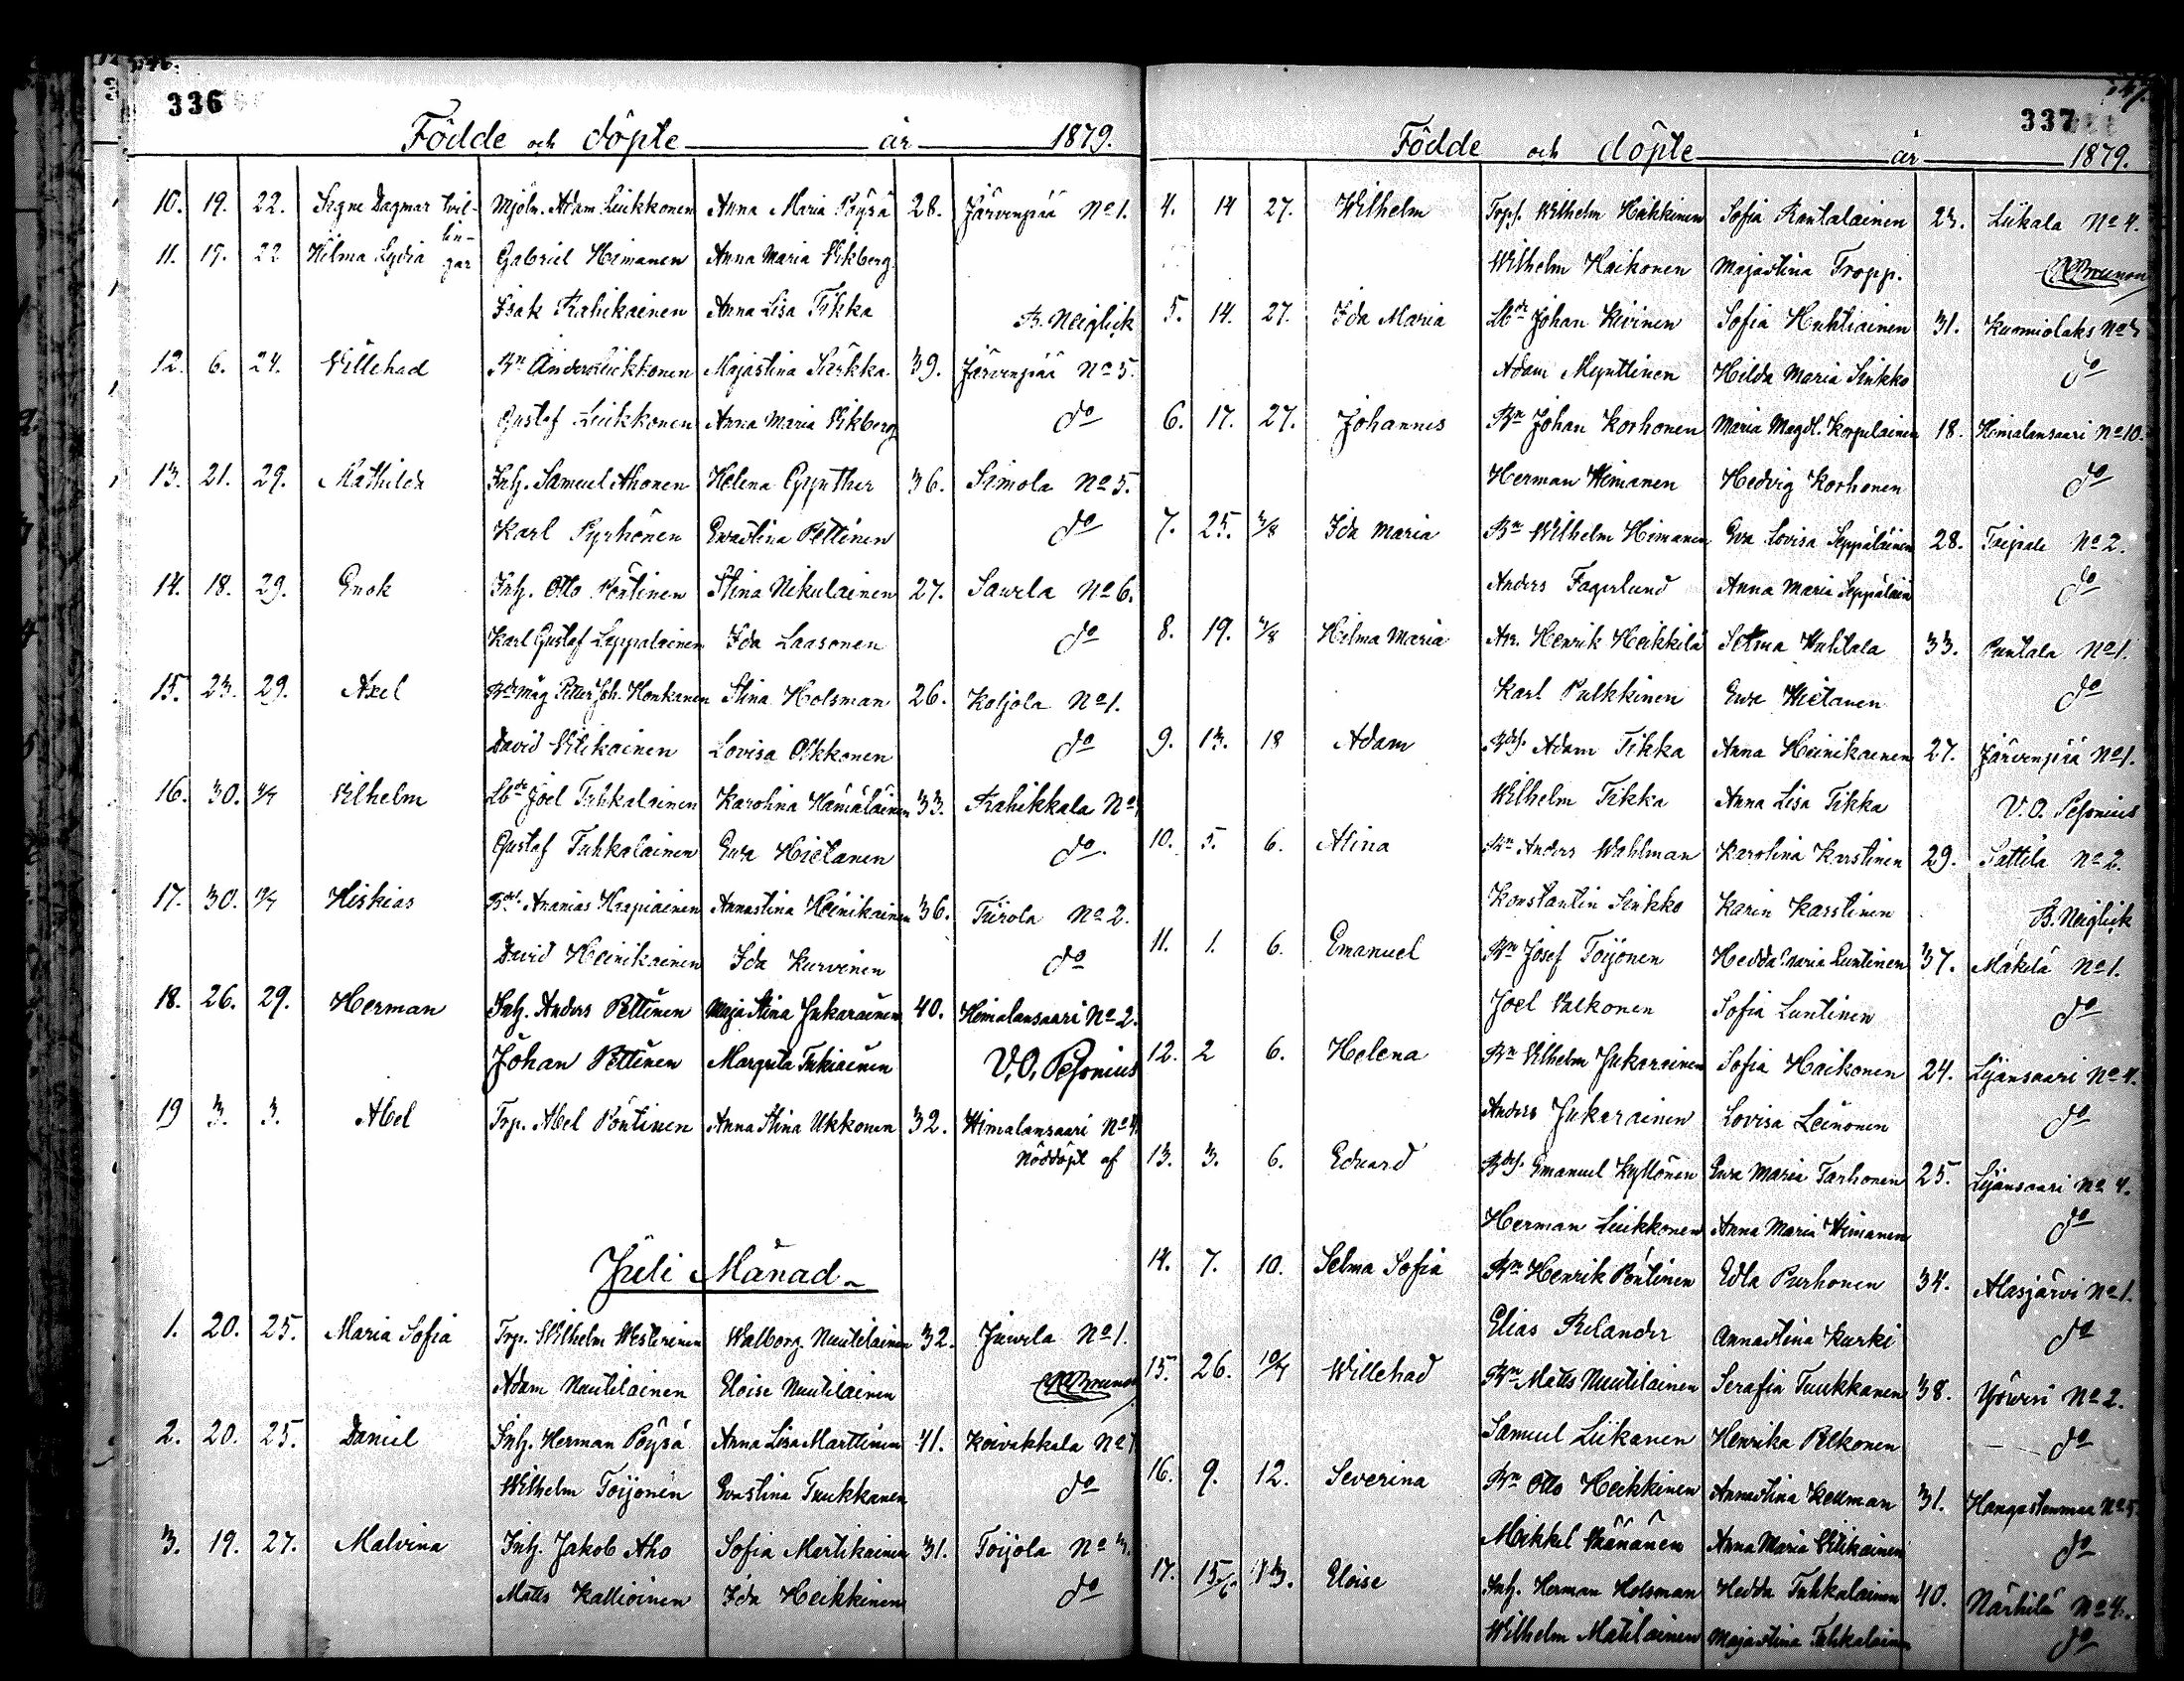 336
Födde och döpte år 1879.
10. 19. 22. Signe Dagmar tvil- Mjöln. Adam Liukkonen Anna Maria Pöysä 28. Järvenpää No 1.
lin-
11. 19. 22 Hilma Lydia gar Gabriel Himanen Anna Maria Vikberg
Isak Rahikainen Anna Lisa Tikka B. Neiglick
12. 6. 24. Villehad Bn Anders Liikkonen Majastina Kärkkä 39. Järvenpää No 5.
Gustaf Liikkonen Anna Maria Vikberg do
13. 21. 29. Mathilda Inh. Samuel Ahonen Helena Gynther 36. Simola No 5.
Karl Pyrhönen Evastina Pettinen do
14. 18. 29. Enok Inh. Otto Pöntinen Stina Nikulainen 27. Saurla No 6.
Karl Gustaf Leppalainen Ida Laasonen do
15. 23. 29. Axel Bdemåg Petter Joh. Honkanen Stina Holsman 26. Koljola No 1.
David Vilikainen Lovisa Olkkonen do
16. 30. 4/7 Vilhelm Lbde Joel Tuhkalainen Karolina Hämäläinen 33. Rahikkala No
Gustaf Tuhkalainen Eva Hietanen do.
17. 30. Hiskias Bdes. Ananias Haapiainen Annastina Heinikainen 36. Tiirola No 2.
David Heinikainen Ida Kurvinen do
18. 26. 29. Herman Inh. Anders Pettinen Maja Stina Jukarainen 40. Himalansaari No 2.
Johan Pettinen Margreta Tukiainen V. O. Pesonius
19 3. 3. Abel Trp. Abel Pöntinen Anna Stina Ukkonen 32. Himalansaari No 4.
Nöddöpt af
Juli Månad
1. 20. 25. Maria Sofia Trp. Wilhelm Westerinen Walborg Nuutilainen 32. Juurla No 1.
Adam Nuutilainen Eloise Nuutilainen
2. 20. 25. Daniel Inh. Herman Pöysä Anna Lisa Marttinen 41. Koivakkala No
Wilhelm Toijonen Evastina Tuukkanen do
3. 19. 27. Malvina Inh. Jakob Aho Sofia Martikainen 31. Toijola No 3.
Matts Kallioinen Ida Heikkinen do
337
Födde och döpte år 1879.
4. 14 27. Wilhelm Torps. Wilhelm Häkkinen Sofia Rantalainen 23. Liikala No 4.
Wilhelm Haikonen Majastina Tropp.
5. 14. 27. Ida Maria Lbde Johan Kivinen Sofia Huhtiainen 31. Kurniolaks No 3
Adam Mynttinen Hilda Maria Sinkko do
6. 17. 27. Johannes Bn Johan Korhonen Maria Magdl. Korpelainen 18. Himalansaari No 10.
Herman Himanen Hedvig Korhonen do
7. 25. 3/8 Ida Maria Bn Wilhelm Himanen Eva Lovisa Seppäläinen 28. Toipale No 2.
Anders Fagerlund Anna Maria Seppäläin do
8. 19. 3/8 Hilma Maria Arr. Henrik Heikkilä Selma Huhtala 33. Puntala No 1.
Karl Pulkkinen Eva Hietanen do
9. 13. 18 Adam Bdes. Adam Tikka Anna Heinikainen 27. Järvenpää No 1.
Wilhelm Tikka Anna Lisa Tikka V. O. Pesonius
10. 5. 6. Alina Bn Anders Wahlman Karolina Karstinen 29. Sattila No 2.
Konstantin Sinkko Karin Karstinen B. Neiglick
11. 1. 6. Emanuel Bn Josef Toijonen Hedda Maria Luntinen 37. Mäkelä No 1.
Joel Valkonen Sofia Luntinen do
12. 2 6. Helena Bn Vilhelm Jukarainen Sofia Haikonen 24. Lijansaari No 4.
Anders Jukarainen Lovisa Leinonen do
13. 3. 6. Edvard Bdes. Emanuel Kyllönen Eva Maria Tarhonen 25. Lijansaari No 4.
Herman Liukkonen Anna Maria Himanen do
14. 7. 10. Selma Sofia Bn Henrik Pöntinen Edla Purhonen 34. Alasjärvi No 1.
Elias Relander Annastina Kurki do
15. 26. 10/7 Willehad Bn Matts Nuutilainen Serafia Tuukkanen 38. Yöveri No 2.
Samuel Liikanen Henrika Pelkonen do
16. 9. 12. Severina Bn Otto Heikkinen Annastina Kellman 31. Hangastenmaa No 5
Mikkel Väänänen Anna Maria Vilikainen do
17. 15/6 13. Eloise Inh. Herman Holsman Hedda Tuhkalainen 40. Närhilä No 4.
Wilhelm Matilainen Majastina Tuhkalainen do